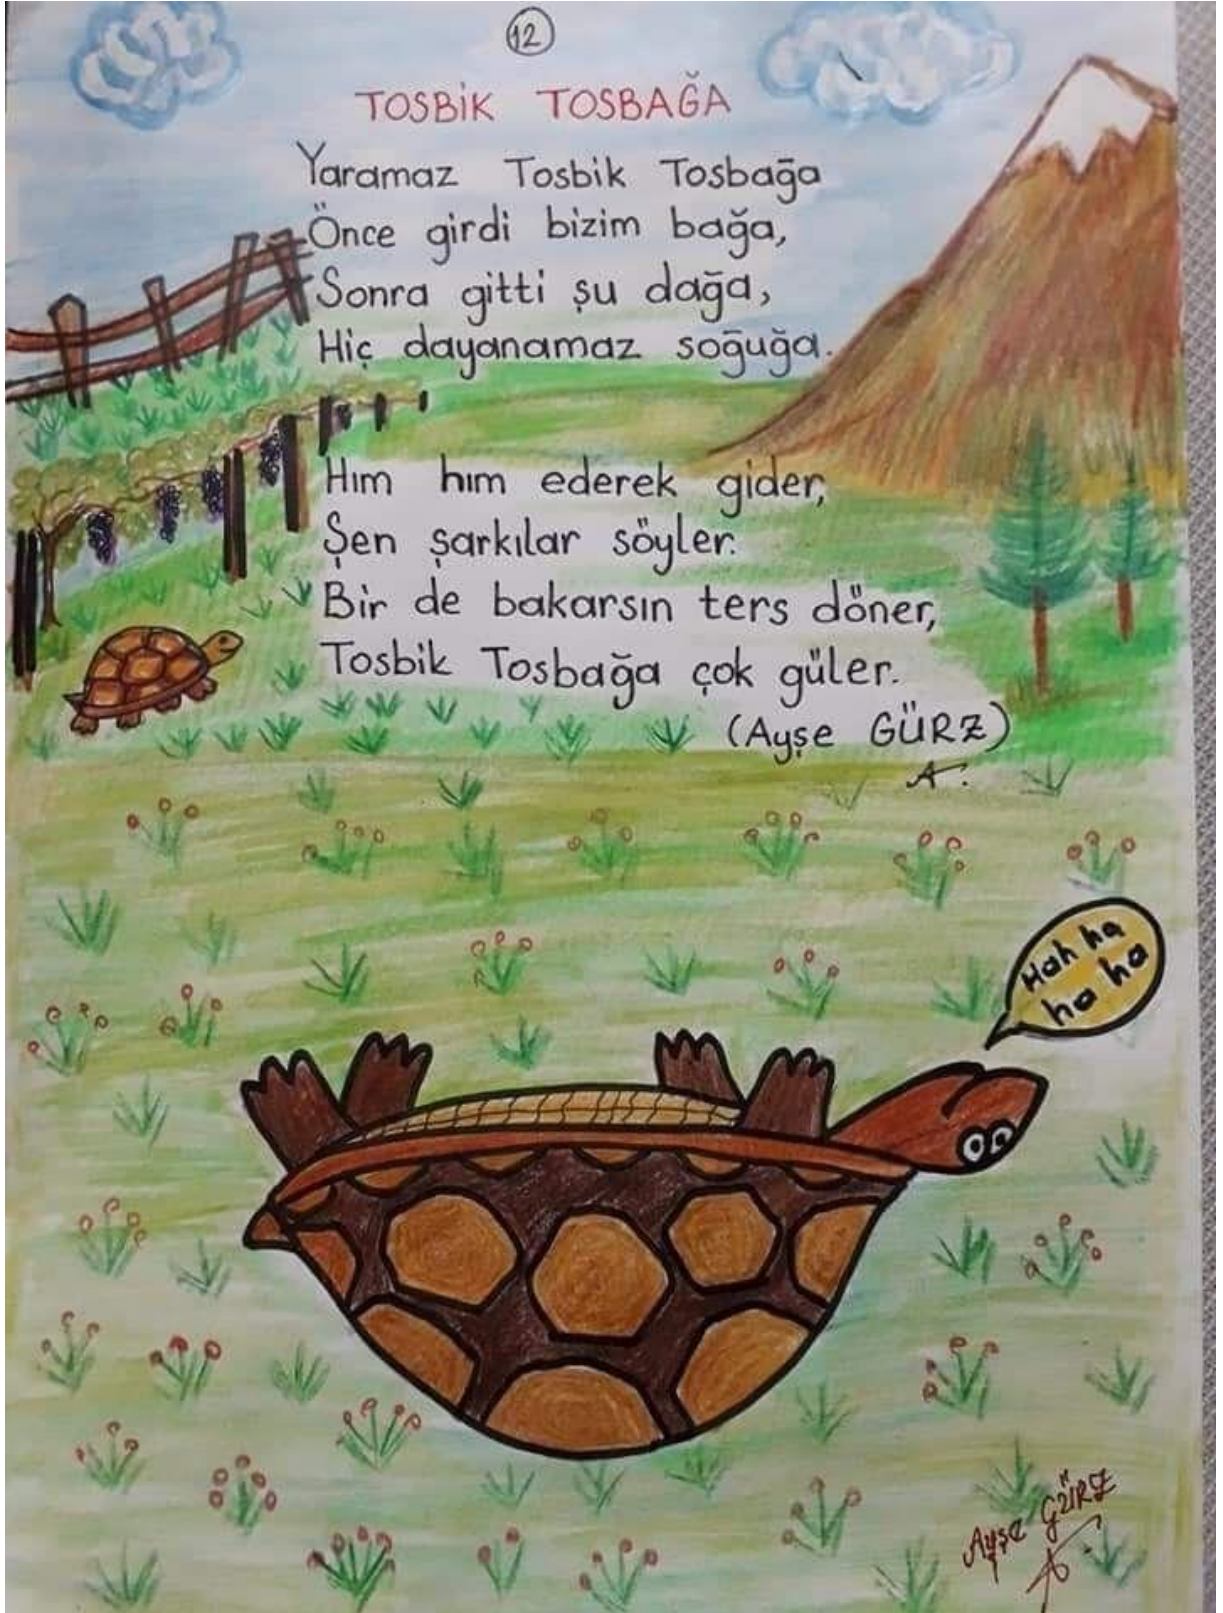 12
TOSBİK TOSBAĞA
Yaramaz Tosbik Tosbağa
Önce girdi bizim bağa,
Sonra gitti şu dağa,
Hiç dayanamaz soğuğa.
Hım hım ederek gider,
Şen şarkılar söyler.
Bir de bakarsın ters döner,
Tosbik Tosbağa çok güler.
(Ayşe GÜRZ)
Hah ha
ha ha
Ayşe GÜRZ